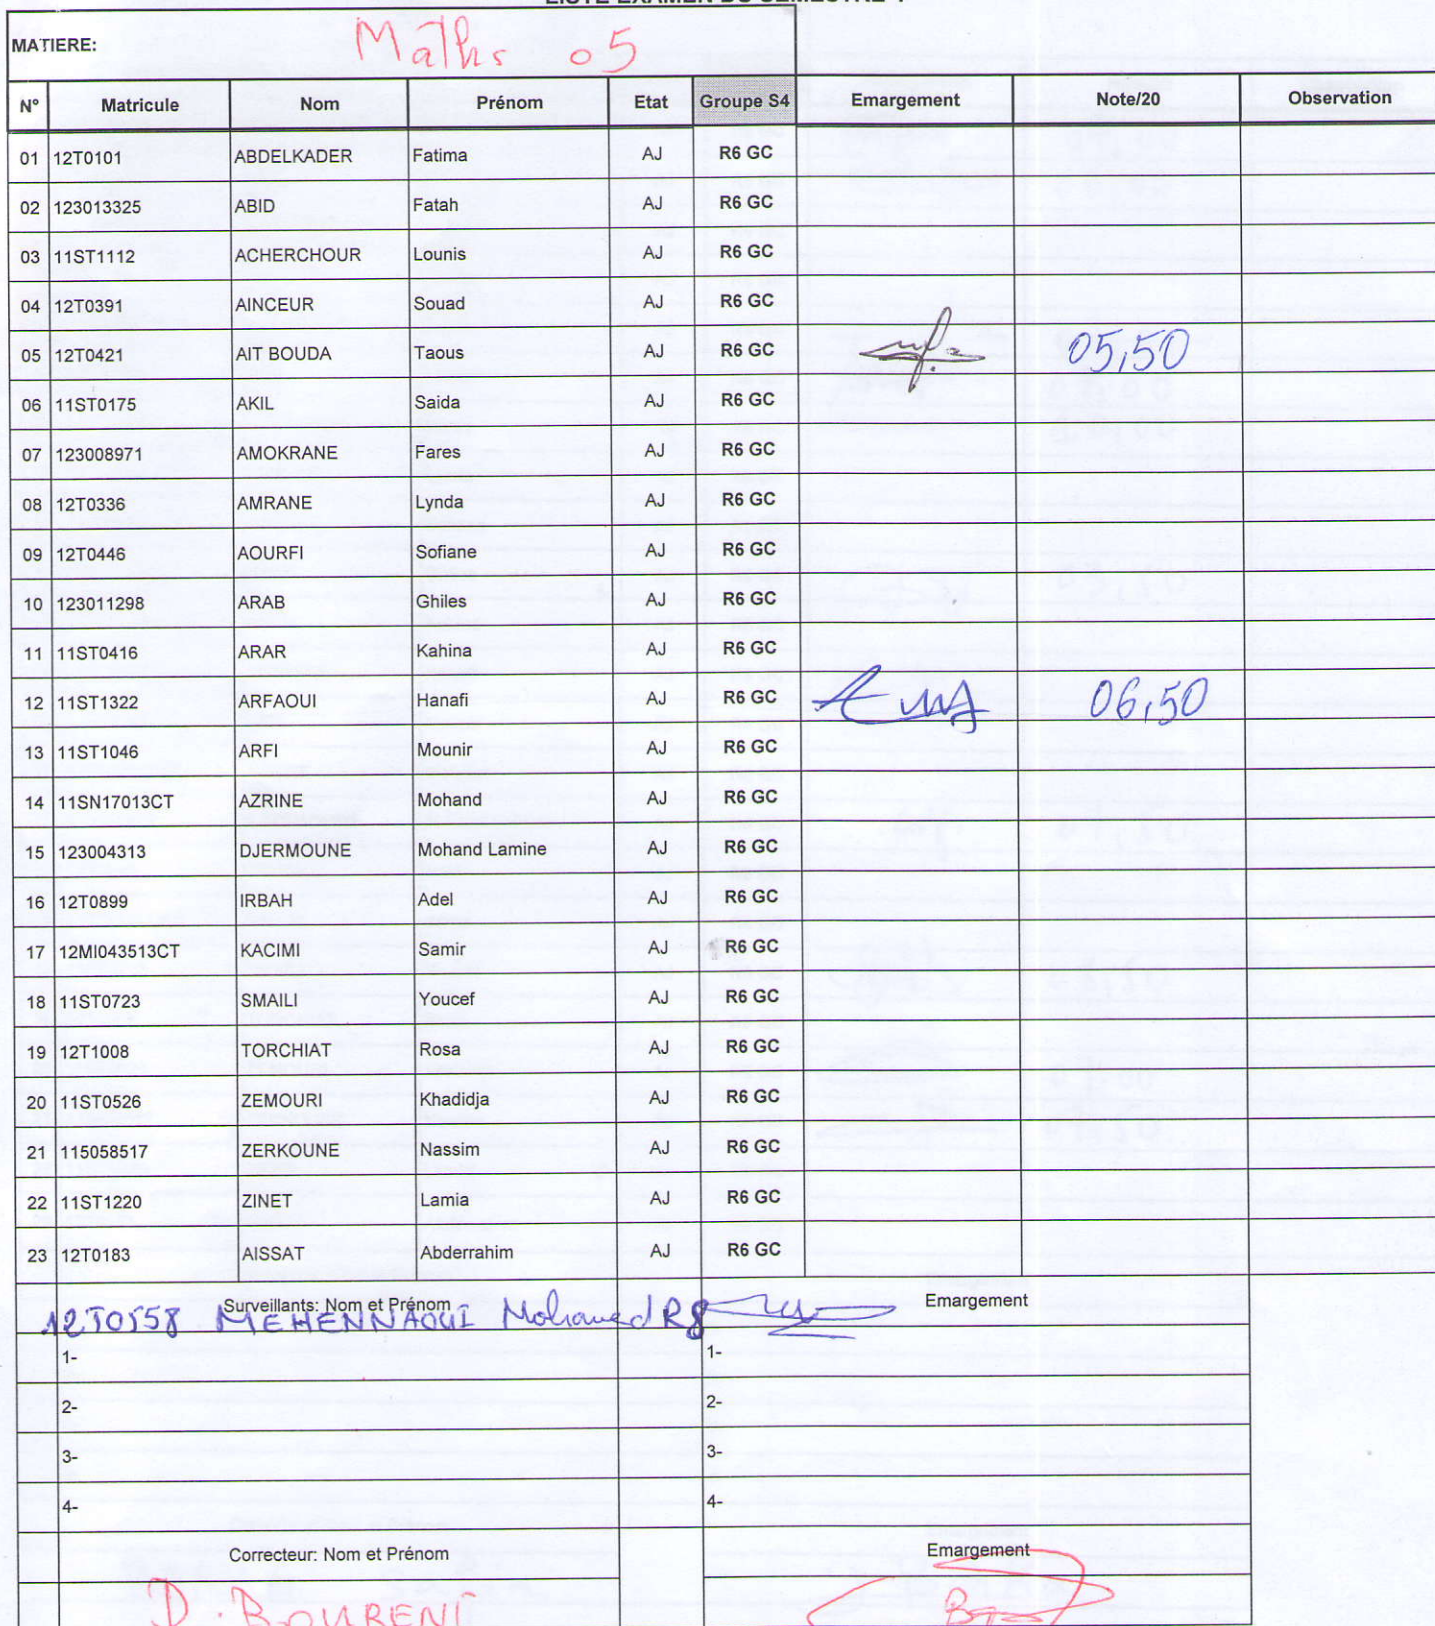 LISTE EXAMEN DU SEMESTRE
MATIERE: Maths 05
N° Matricule Nom Prénom Etat Groupe S4 Emargement Note/20 Observation
01 12T0101 ABDELKADER Fatima AJ R6 GC
02 123013325 ABID Fatah AJ R6 GC
03 11ST1112 ACHERCHOUR Lounis AJ R6 GC
04 12T0391 AINCEUR Souad AJ R6 GC
05 12T0421 AIT BOUDA Taous AJ R6 GC 05,50
06 11ST0175 AKIL Saida AJ R6 GC
07 123008971 AMOKRANE Fares AJ R6 GC
08 12T0336 AMRANE Lynda AJ R6 GC
09 12T0446 AOURFI Sofiane AJ R6 GC
10 123011298 ARAB Ghiles AJ R6 GC
11 11ST0416 ARAR Kahina AJ R6 GC
12 11ST1322 ARFAOUI Hanafi AJ R6 GC 06,50
13 11ST1046 ARFI Mounir AJ R6 GC
14 11SN17013CT AZRINE Mohand AJ R6 GC
15 123004313 DJERMOUNE Mohand Lamine AJ R6 GC
16 12T0899 IRBAH Adel AJ R6 GC
17 12MI043513CT KACIMI Samir AJ R6 GC
18 11ST0723 SMAILI Youcef AJ R6 GC
19 12T1008 TORCHIAT Rosa AJ R6 GC
20 11ST0526 ZEMOURI Khadidja AJ R6 GC
21 115058517 ZERKOUNE Nassim AJ R6 GC
22 11ST1220 ZINET Lamia AJ R6 GC
23 12T0183 AISSAT Abderrahim AJ R6 GC
Surveillants: Nom et Prénom Emargement
12T0558 MEHENNAOUI Mohamed R8
1- 1-
2- 2-
3- 3-
4- 4-
Correcteur: Nom et Prénom Emargement
D. BOURENI